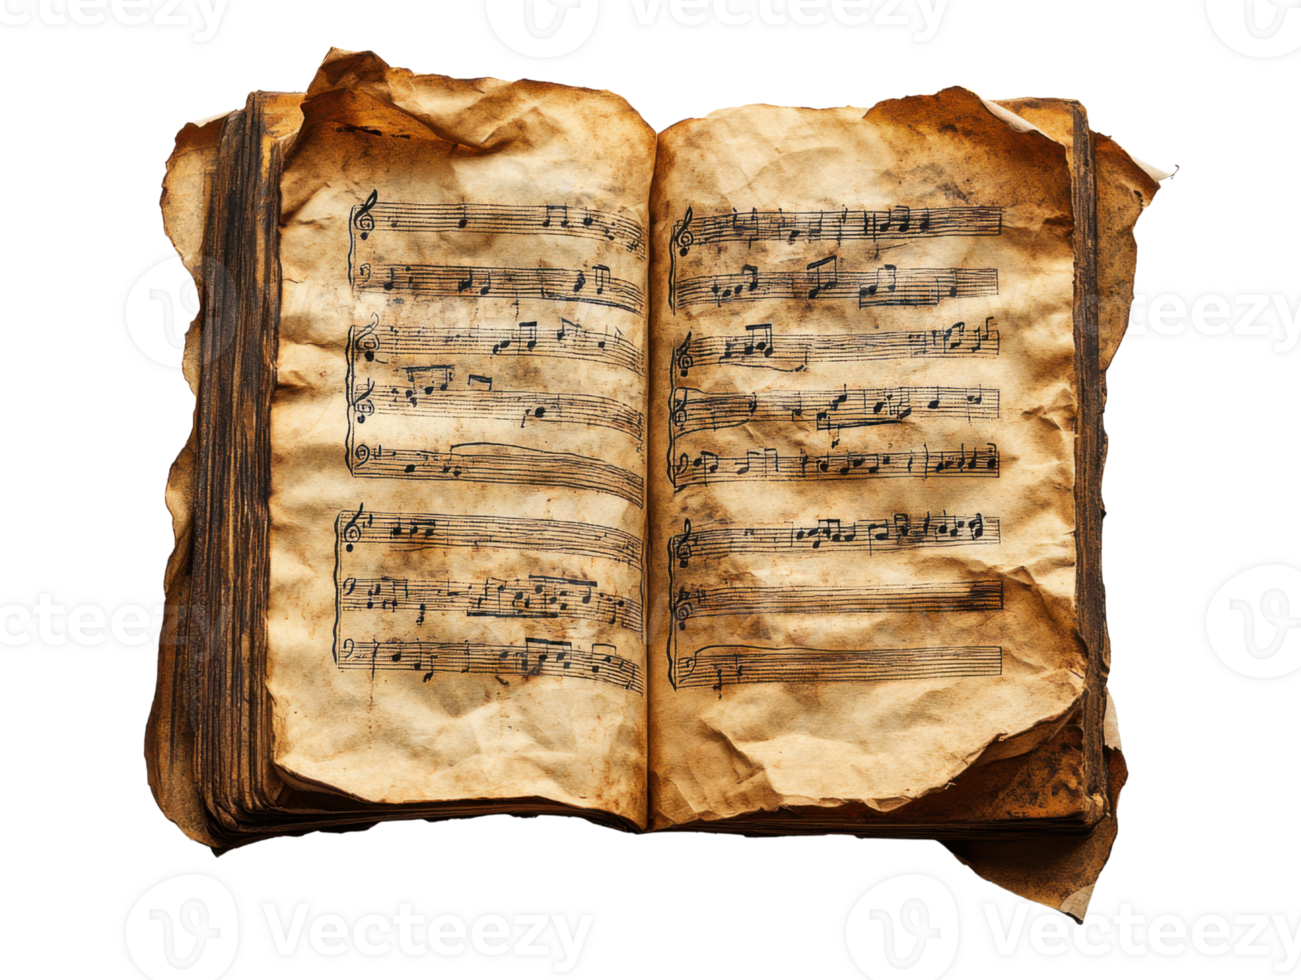 Vecteezy
Vecteezy
Vecteezy
Vecteezy
Vecteezy
Vecteezy